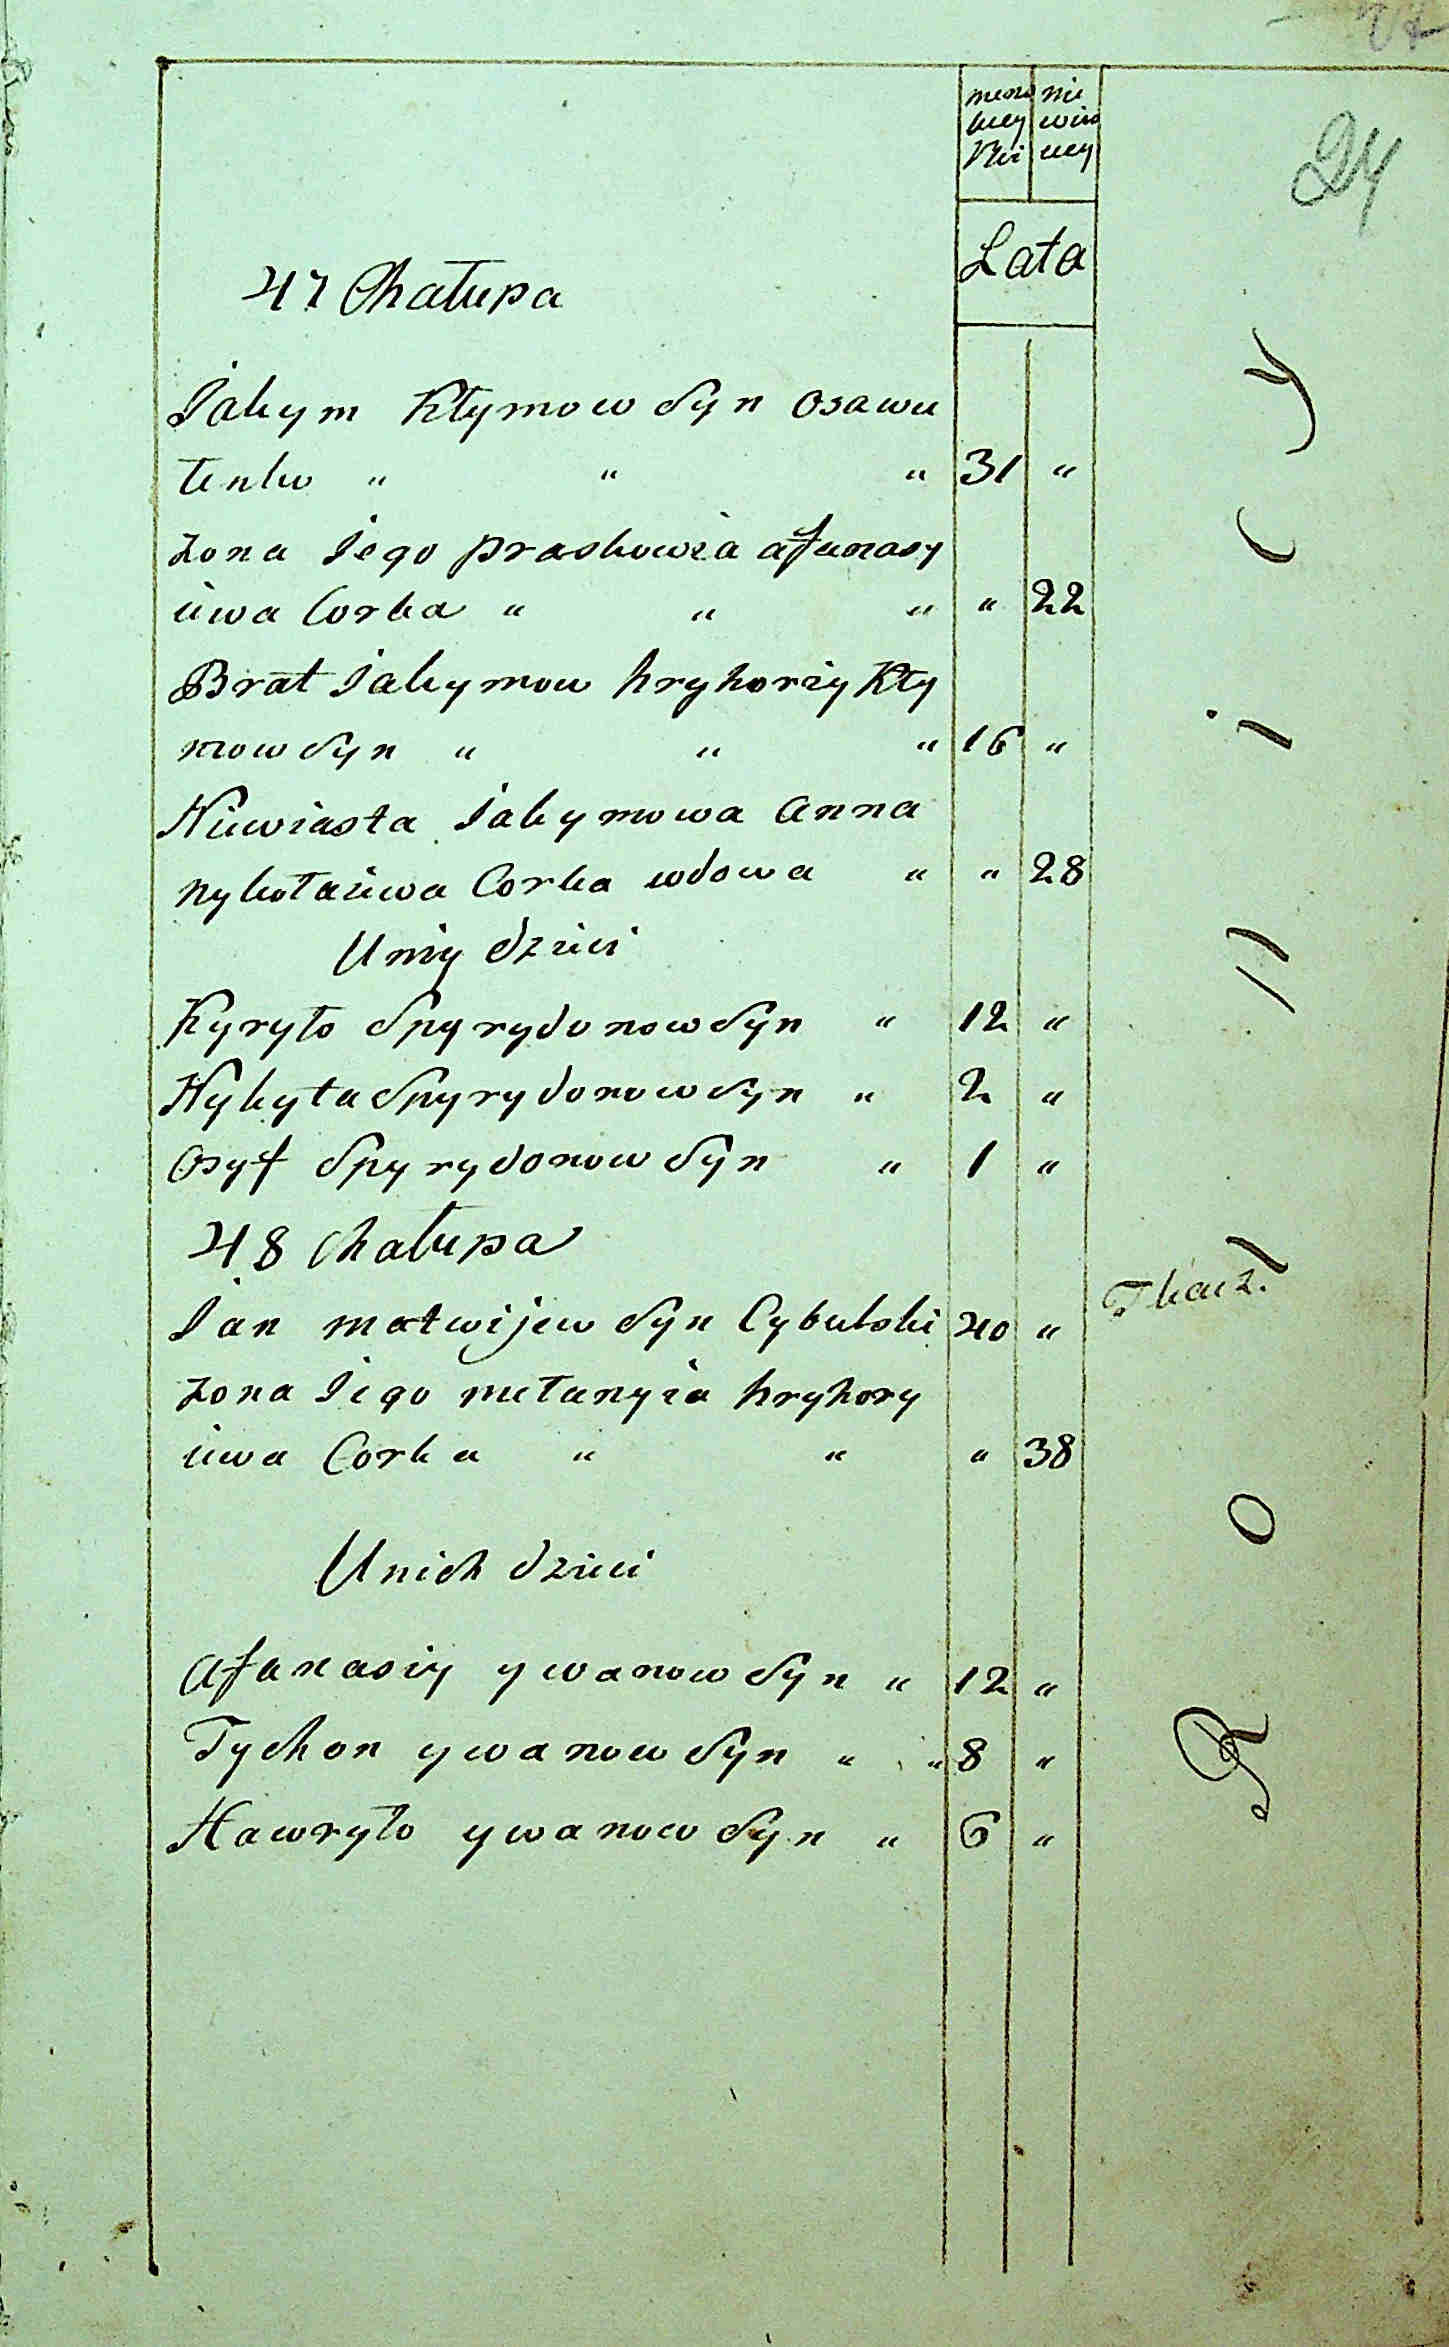 24
męzz nie
kiey wias
Płci ciey
Lata
47 Chałupa
Jakym Kłymow Syn Osawu
łenko " " " 31 "
żona Jego praskowia afanasy
iewa Corka " " " " 22
Brat Jakymow hryhoriy Kły
mow Syn " " " 16 "
Niewiasta Jakymowa Anna
nykołaiewa Corka wdowa " " 28
Uniy dzieci
Kyryło Spyrydonow Syn " 12 "
Nykyta Spyrydonow Syn " 2 "
Osyf Spyrydonow Syn " 1 "
48 Chałupa
Jan matwijew Syn Cybulski 40 " Tkacz.
żona Jego mełanyia hryhory
iewa Corka " " " 38
Unich dzieci
Afanasiy ywanow Syn " 12 "
Tychon ywanow Syn " " 8 "
Hawryło ywanow Syn " 6 "
Rolnicy